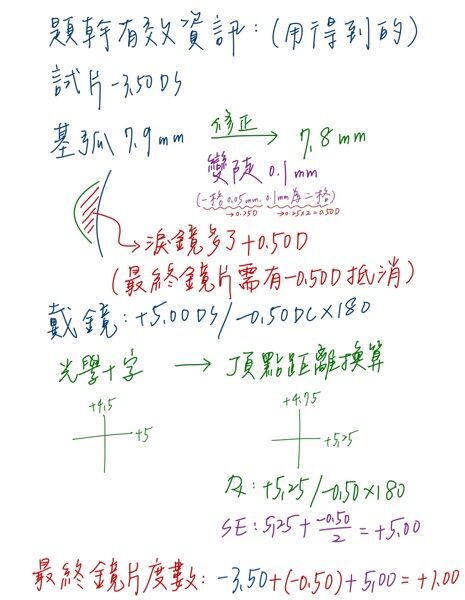 題幹有效資訊:(用得到的)
試片-3.50DS
基弧 7.9mm 修正 → 7.8mm
變陡 0.1mm
(一格0.05mm, 0.1mm為二格)
→0.25D →0.25x2=0.50D
→淚鏡多了+0.50D
(最終鏡片需有-0.50D抵消)
戴鏡:+5.00DS/-0.50DCx180
光學十字 → 頂點距離換算
+4.5 +4.75
+5 +5.25
及:+5.25/-0.50x180
SE:5.25+-0.50/2=+5.00
最終鏡片度數:-3.50+(-0.50)+5.00=+1.00